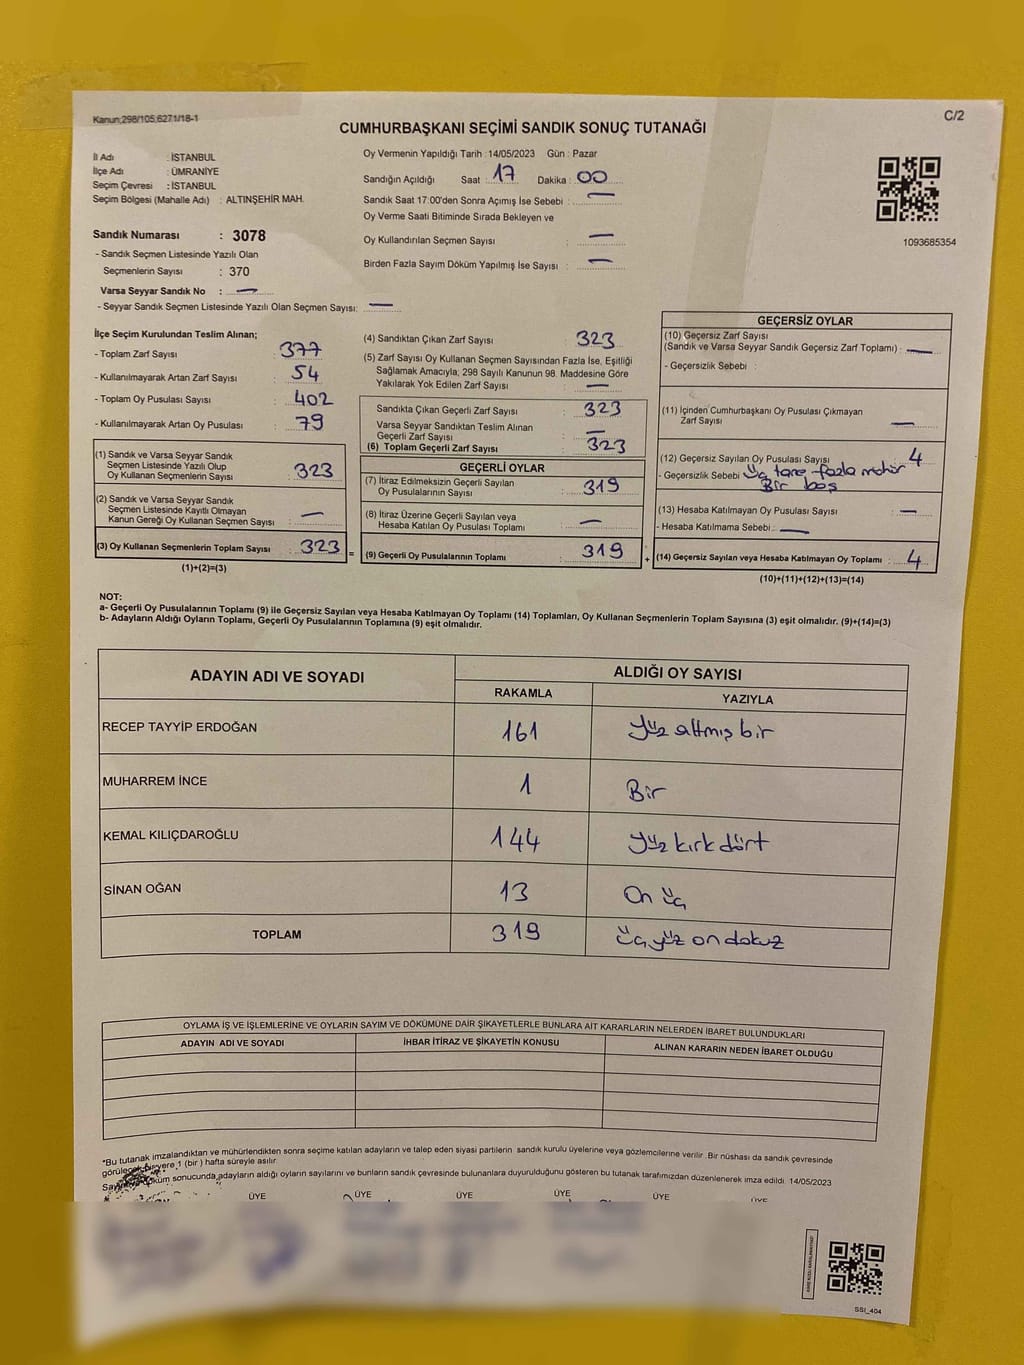 Kanun;298/105;6271/18-1
C/2
CUMHURBAŞKANI SEÇİMİ SANDIK SONUÇ TUTANAĞI
İl Adı : İSTANBUL
İlçe Adı : ÜMRANİYE
Seçim Çevresi : İSTANBUL
Seçim Bölgesi (Mahalle Adı) : ALTINŞEHİR MAH.
Sandık Numarası : 3078
- Sandık Seçmen Listesinde Yazılı Olan
Seçmenlerin Sayısı : 370
Varsa Seyyar Sandık No : —
- Seyyar Sandık Seçmen Listesinde Yazılı Olan Seçmen Sayısı: —
Oy Vermenin Yapıldığı Tarih :14/05/2023 Gün : Pazar
Sandığın Açıldığı Saat : 17 Dakika : 00
Sandık Saat 17:00'den Sonra Açımış İse Sebebi : —
Oy Verme Saati Bitiminde Sırada Bekleyen ve
Oy Kullandırılan Seçmen Sayısı : —
Birden Fazla Sayım Döküm Yapılmış İse Sayısı : —
1093685354
İlçe Seçim Kurulundan Teslim Alınan;
- Toplam Zarf Sayısı : 377
- Kullanılmayarak Artan Zarf Sayısı : 54
- Toplam Oy Pusulası Sayısı : 402
- Kullanılmayarak Artan Oy Pusulası : 79
(1) Sandık ve Varsa Seyyar Sandık
Seçmen Listesinde Yazılı Olup
Oy Kullanan Seçmenlerin Sayısı : 323
(2) Sandık ve Varsa Seyyar Sandık
Seçmen Listesinde Kayıtlı Olmayan
Kanun Gereği Oy Kullanan Seçmen Sayısı : —
(3) Oy Kullanan Seçmenlerin Toplam Sayısı : 323 =
(1)+(2)=(3)
(4) Sandıktan Çıkan Zarf Sayısı : 323
(5) Zarf Sayısı Oy Kullanan Seçmen Sayısından Fazla İse, Eşitliği
Sağlamak Amacıyla, 298 Sayılı Kanunun 98. Maddesine Göre
Yakılarak Yok Edilen Zarf Sayısı : —
Sandıkta Çıkan Geçerli Zarf Sayısı : 323
Varsa Seyyar Sandıktan Teslim Alınan
Geçerli Zarf Sayısı : —
(6) Toplam Geçerli Zarf Sayısı : 323
GEÇERLİ OYLAR
(7) İtiraz Edilmeksizin Geçerli Sayılan
Oy Pusulalarının Sayısı : 319
(8) İtiraz Üzerine Geçerli Sayılan veya
Hesaba Katılan Oy Pusulası Toplamı : —
(9) Geçerli Oy Pusulalarının Toplamı : 319 +
GEÇERSİZ OYLAR
(10) Geçersiz Zarf Sayısı
(Sandık ve Varsa Seyyar Sandık Geçersiz Zarf Toplamı) : —
- Geçersizlik Sebebi :
(11) İçinden Cumhurbaşkanı Oy Pusulası Çıkmayan
Zarf Sayısı : —
(12) Geçersiz Sayılan Oy Pusulası Sayısı : 4
- Geçersizlik Sebebi : Üç tane fazla mühür
Bir boş
(13) Hesaba Katılmayan Oy Pusulası Sayısı : —
- Hesaba Katılmama Sebebi : —
(14) Geçersiz Sayılan veya Hesaba Katılmayan Oy Toplamı : 4
(10)+(11)+(12)+(13)=(14)
NOT:
a- Geçerli Oy Pusulalarının Toplamı (9) ile Geçersiz Sayılan veya Hesaba Katılmayan Oy Toplamı (14) Toplamları, Oy Kullanan Seçmenlerin Toplam Sayısına (3) eşit olmalıdır. (9)+(14)=(3)
b- Adayların Aldığı Oyların Toplamı, Geçerli Oy Pusulalarının Toplamına (9) eşit olmalıdır.
ADAYIN ADI VE SOYADI ALDIĞI OY SAYISI
RAKAMLA YAZIYLA
RECEP TAYYİP ERDOĞAN 161 Yüz altmış bir
MUHARREM İNCE 1 Bir
KEMAL KILIÇDAROĞLU 144 Yüz kırk dört
SİNAN OĞAN 13 On üç
TOPLAM 319 üç yüz on dokuz
OYLAMA İŞ VE İŞLEMLERİNE VE OYLARIN SAYIM VE DÖKÜMÜNE DAİR ŞİKAYETLERLE BUNLARA AİT KARARLARIN NELERDEN İBARET BULUNDUKLARI
ADAYIN ADI VE SOYADI İHBAR İTİRAZ VE ŞİKAYETİN KONUSU ALINAN KARARIN NEDEN İBARET OLDUĞU
*Bu tutanak imzalandıktan ve mühürlendikten sonra seçime katılan adayların ve talep eden siyasi partilerin sandık kurulu üyelerine veya gözlemcilerine verilir. Bir nüshası da sandık çevresinde
görülecek bir yere 1 (bir ) hafta süreyle asılır.
döküm sonucunda adayların aldığı oyların sayılarını ve bunların sandık çevresinde bulunanlara duyurulduğunu gösteren bu tutanak tarafımızdan düzenlenerek imza edildi. 14/05/2023
ÜYE ÜYE ÜYE ÜYE ÜYE ÜYE
SSI_404